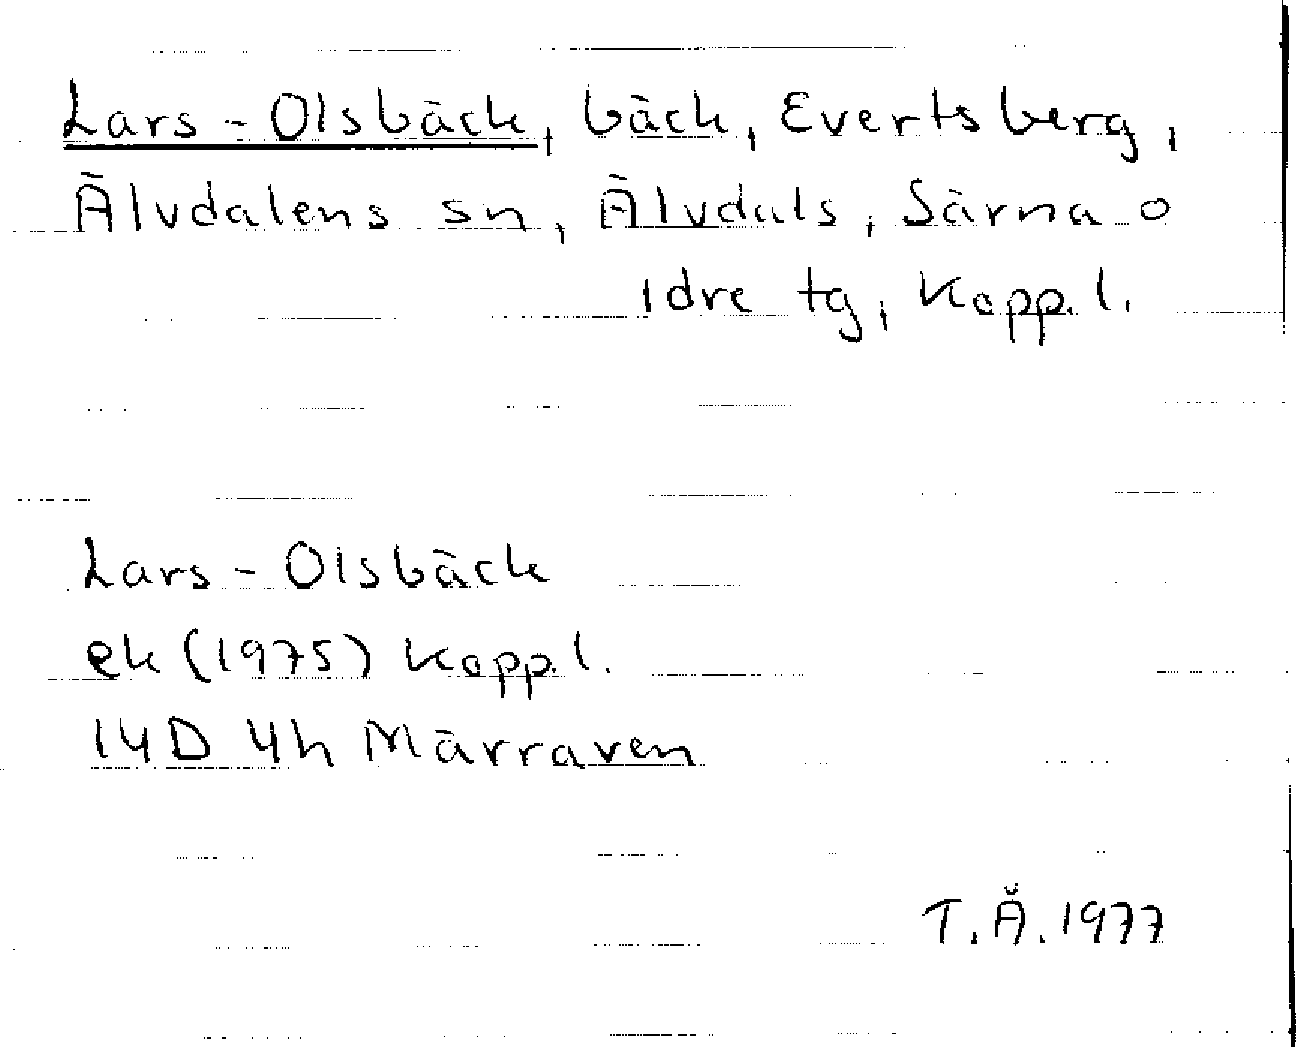 Lars-Olsbäck, bäck, Evertsberg,
Älvdalens sn, Älvdals, Särna o
Idre tg, Kopp.l.
Lars-Olsbäck
ek (1975) Kopp.l.
14D 4h Märraven
T.Å.1977